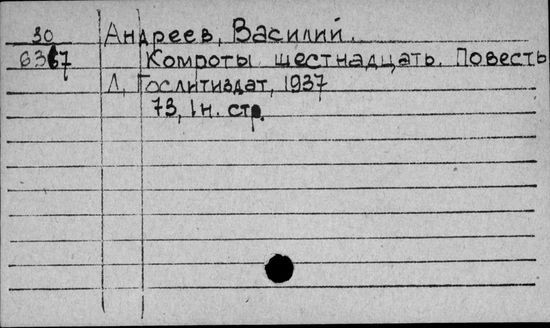 30 Андреев, Василий.
6367 Комроты шестнадцать. Повесть
Л, Гослитиздат, 1937
73, 1 н. стр.